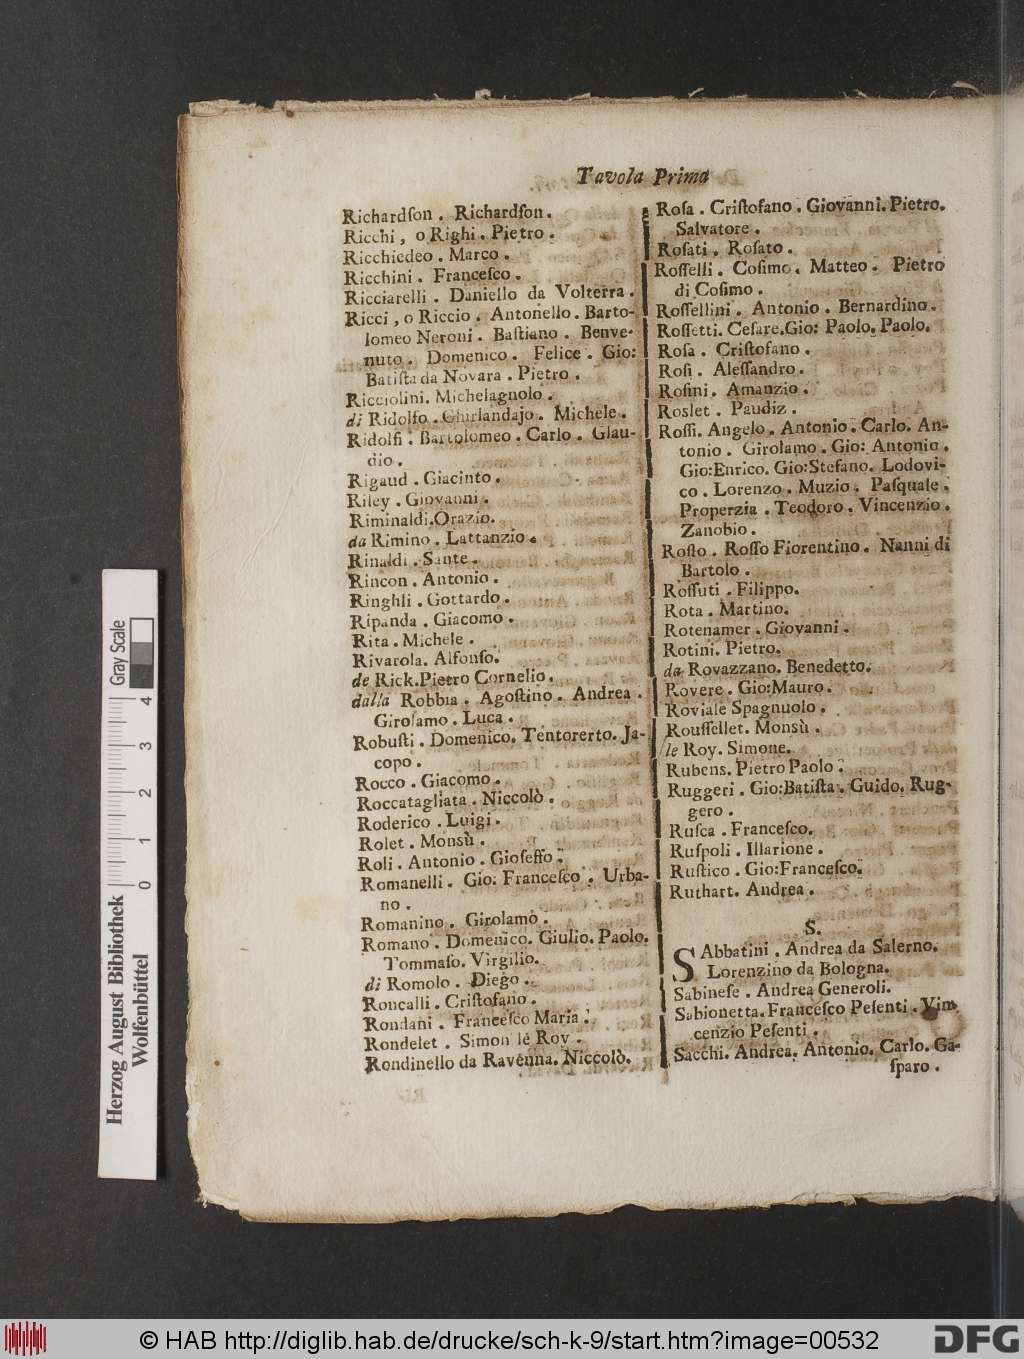 Tavola Prima
Richardſon . Richardſon .
Ricchi , o Righi . Pietro .
Ricchiedeo . Marco .
Ricchini . Franceſco .
Ricciarelli . Daniello da Volterra .
Ricci , o Riccio . Antonello . Barto-
lomeo Neroni . Baſtiano . Benve-
nuto . Domenico . Felice . Gio:
Batiſta da Novara . Pietro .
Ricciolini. Michelagnolo .
di Ridolfo . Ghirlandajo . Michele .
Ridolfi . Bartolomeo . Carlo . Glau-
dio .
Rigaud . Giacinto .
Riley . Giovanni .
Riminaldi.Orazio.
da Rimino . Lattanzio .
Rinaldi . Sante .
Rincon . Antonio .
Ringhli . Gottardo .
Ripanda . Giacomo .
Rita . Michele .
Rivarola. Alfonſo.
de Rick.Pietro Cornelio.
dalla Robbia . Agoſtino . Andrea .
Girolamo . Luca .
Robuſti . Domenico. Tentorerto. Ja-
copo .
Rocco . Giacomo .
Roccatagliata . Niccolò .
Roderico . Luigi .
Rolet . Monsù .
Roli . Antonio . Gioſeffo .
Romanelli . Gio: Franceſco . Urba-
no .
Romanino . Girolamo .
Romano . Domenico. Giulio. Paolo.
Tommaſo. Virgilio.
di Romolo . Diego .
Roncalli . Criſtofano .
Rondani . Franceſco Maria .
Rondelet . Simon le Roy .
Rondinello da Ravenna. Niccolò.
Roſa . Criſtofano . Giovanni. Pietro.
Salvatore .
Roſati . Roſato .
Roſſelli . Coſimo . Matteo . Pietro
di Coſimo .
Roſſellini . Antonio . Bernardino .
Roſſetti. Ceſare.Gio: Paolo. Paolo.
Roſa . Criſtofano .
Roſi . Aleſſandro .
Roſini . Amanzio .
Roslet . Paudiz .
Roſſi. Angelo . Antonio . Carlo. An-
tonio . Girolamo . Gio: Antonio .
Gio:Enrico. Gio:Stefano. Lodovi-
co . Lorenzo . Muzio . Paſquale .
Properzia . Teodoro . Vincenzio .
Zanobio .
Roſto . Roſſo Fiorentino . Nanni di
Bartolo .
Roſſuti . Filippo.
Rota . Martino.
Rotenamer . Giovanni .
Rotini. Pietro.
da Rovazzano. Benedetto.
Rovere . Gio:Mauro .
Roviale Spagnuolo .
Rouſſellet . Monsù .
le Roy. Simone.
Rubens. Pietro Paolo .
Ruggeri . Gio:Batiſta . Guido. Rug-
gero .
Ruſca . Franceſco.
Ruſpoli . Illarione .
Ruſtico . Gio:Franceſco.
Ruthart. Andrea .
S.
SAbbatini . Andrea da Salerno.
Lorenzino da Bologna.
Sabineſe . Andrea Generoli.
Sabionetta. Franceſco Peſenti . Vin-
cenzio Peſenti .
Sacchi. Andrea. Antonio. Carlo. Ga-
ſparo .
Gray Scale
4 3 2 1 0
Herzog August Bibliothek
Wolfenbüttel
© HAB http://diglib.hab.de/drucke/sch-k-9/start.htm?image=00532
DFG